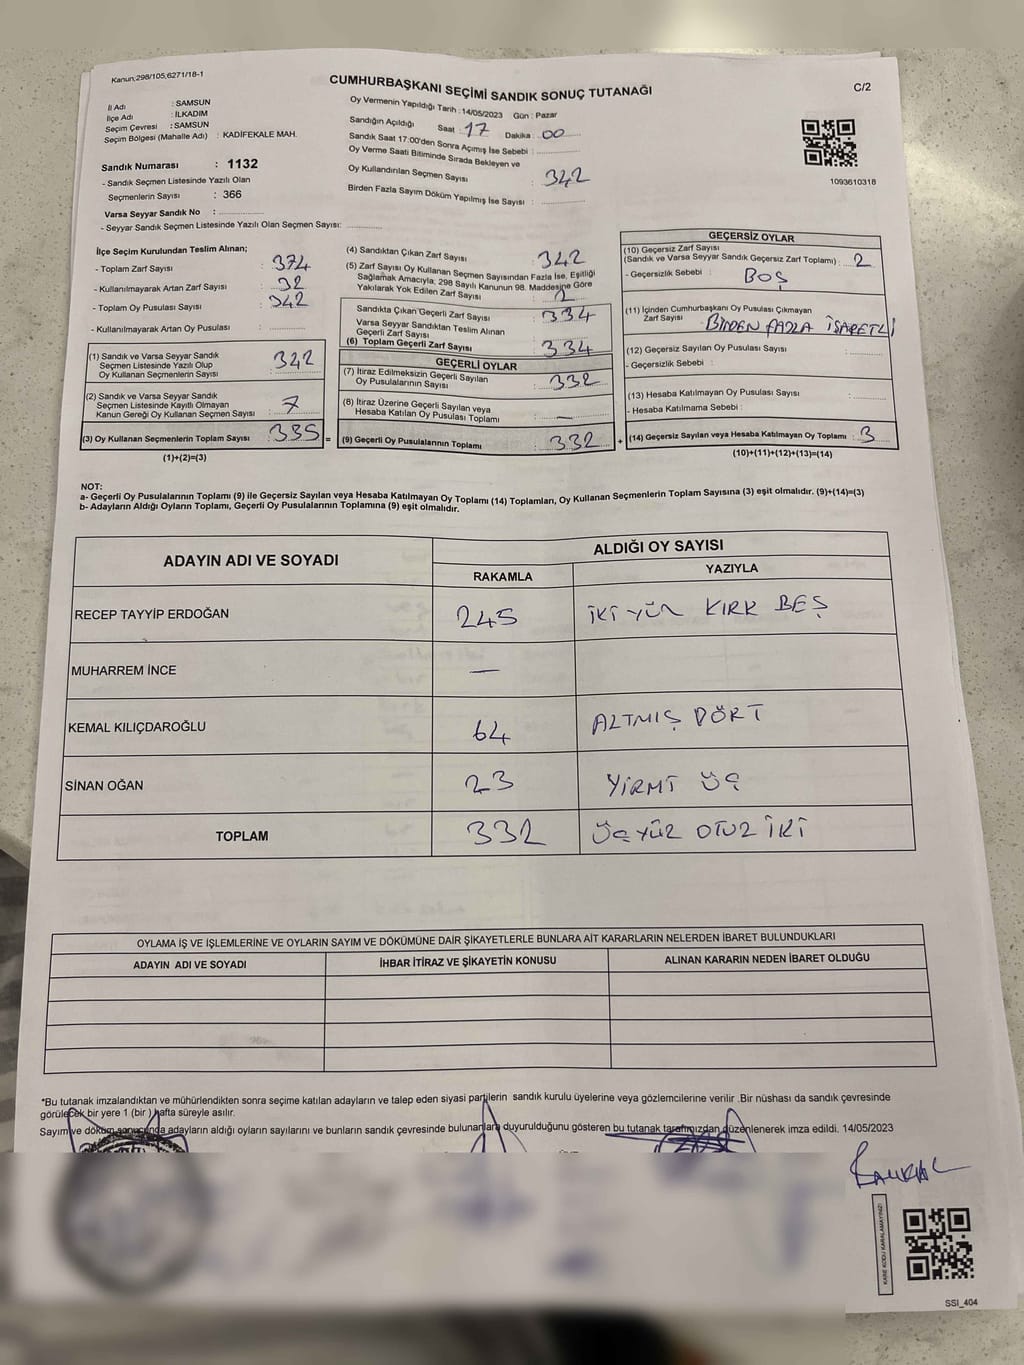 Kanun;298/105,6271/18-1
CUMHURBAŞKANI SEÇİMİ SANDIK SONUÇ TUTANAĞI
C/2
İl Adı : SAMSUN
İlçe Adı : İLKADIM
Seçim Çevresi : SAMSUN
Seçim Bölgesi (Mahalle Adı) : KADİFEKALE MAH.
Sandık Numarası : 1132
- Sandık Seçmen Listesinde Yazılı Olan
Seçmenlerin Sayısı : 366
Varsa Seyyar Sandık No :
- Seyyar Sandık Seçmen Listesinde Yazılı Olan Seçmen Sayısı:
Oy Vermenin Yapıldığı Tarih : 14/05/2023 Gün : Pazar
Sandığın Açıldığı Saat : 17 Dakika : 00
Sandık Saat 17:00'den Sonra Açımış İse Sebebi :
Oy Verme Saati Bitiminde Sırada Bekleyen ve
Oy Kullandırılan Seçmen Sayısı : 342
Birden Fazla Sayım Döküm Yapılmış İse Sayısı :
1093610318
İlçe Seçim Kurulundan Teslim Alınan;
- Toplam Zarf Sayısı : 374
- Kullanılmayarak Artan Zarf Sayısı : 32
- Toplam Oy Pusulası Sayısı : 342
- Kullanılmayarak Artan Oy Pusulası :
(1) Sandık ve Varsa Seyyar Sandık
Seçmen Listesinde Yazılı Olup
Oy Kullanan Seçmenlerin Sayısı : 342
(2) Sandık ve Varsa Seyyar Sandık
Seçmen Listesinde Kayıtlı Olmayan
Kanun Gereği Oy Kullanan Seçmen Sayısı : 7
(3) Oy Kullanan Seçmenlerin Toplam Sayısı : 335 =
(1)+(2)=(3)
(4) Sandıktan Çıkan Zarf Sayısı : 342
(5) Zarf Sayısı Oy Kullanan Seçmen Sayısından Fazla İse, Eşitliği
Sağlamak Amacıyla, 298 Sayılı Kanunun 98. Maddesine Göre
Yakılarak Yok Edilen Zarf Sayısı :
Sandıkta Çıkan Geçerli Zarf Sayısı : 334
Varsa Seyyar Sandıktan Teslim Alınan
Geçerli Zarf Sayısı :
(6) Toplam Geçerli Zarf Sayısı : 334
GEÇERLİ OYLAR
(7) İtiraz Edilmeksizin Geçerli Sayılan
Oy Pusulalarının Sayısı : 332
(8) İtiraz Üzerine Geçerli Sayılan veya
Hesaba Katılan Oy Pusulası Toplamı : —
(9) Geçerli Oy Pusulalarının Toplamı : 332 +
GEÇERSİZ OYLAR
(10) Geçersiz Zarf Sayısı
(Sandık ve Varsa Seyyar Sandık Geçersiz Zarf Toplamı) : 2
- Geçersizlik Sebebi : BOŞ
(11) İçinden Cumhurbaşkanı Oy Pusulası Çıkmayan
Zarf Sayısı : BİRDEN FAZLA İŞARETLİ
(12) Geçersiz Sayılan Oy Pusulası Sayısı :
- Geçersizlik Sebebi :
(13) Hesaba Katılmayan Oy Pusulası Sayısı :
- Hesaba Katılmama Sebebi :
(14) Geçersiz Sayılan veya Hesaba Katılmayan Oy Toplamı : 3
(10)+(11)+(12)+(13)=(14)
NOT:
a- Geçerli Oy Pusulalarının Toplamı (9) ile Geçersiz Sayılan veya Hesaba Katılmayan Oy Toplamı (14) Toplamları, Oy Kullanan Seçmenlerin Toplam Sayısına (3) eşit olmalıdır. (9)+(14)=(3)
b- Adayların Aldığı Oyların Toplamı, Geçerli Oy Pusulalarının Toplamına (9) eşit olmalıdır.
ADAYIN ADI VE SOYADI ALDIĞI OY SAYISI
RAKAMLA YAZIYLA
RECEP TAYYİP ERDOĞAN 245 İKİ YÜZ KIRK BEŞ
MUHARREM İNCE —
KEMAL KILIÇDAROĞLU 64 ALTMIŞ DÖRT
SİNAN OĞAN 23 YİRMİ ÜÇ
TOPLAM 332 ÜÇ YÜZ OTUZ İKİ
OYLAMA İŞ VE İŞLEMLERİNE VE OYLARIN SAYIM VE DÖKÜMÜNE DAİR ŞİKAYETLERLE BUNLARA AİT KARARLARIN NELERDEN İBARET BULUNDUKLARI
ADAYIN ADI VE SOYADI İHBAR İTİRAZ VE ŞİKAYETİN KONUSU ALINAN KARARIN NEDEN İBARET OLDUĞU
*Bu tutanak imzalandıktan ve mühürlendikten sonra seçime katılan adayların ve talep eden siyasi partilerin sandık kurulu üyelerine veya gözlemcilerine verilir .Bir nüshası da sandık çevresinde
görülecek bir yere 1 (bir ) hafta süreyle asılır.
Sayım ve döküm sonucunda adayların aldığı oyların sayılarını ve bunların sandık çevresinde bulunanlara duyurulduğunu gösteren bu tutanak tarafımızdan düzenlenerek imza edildi. 14/05/2023
KARE KODU KARALAMAYINIZ!
SSI_404